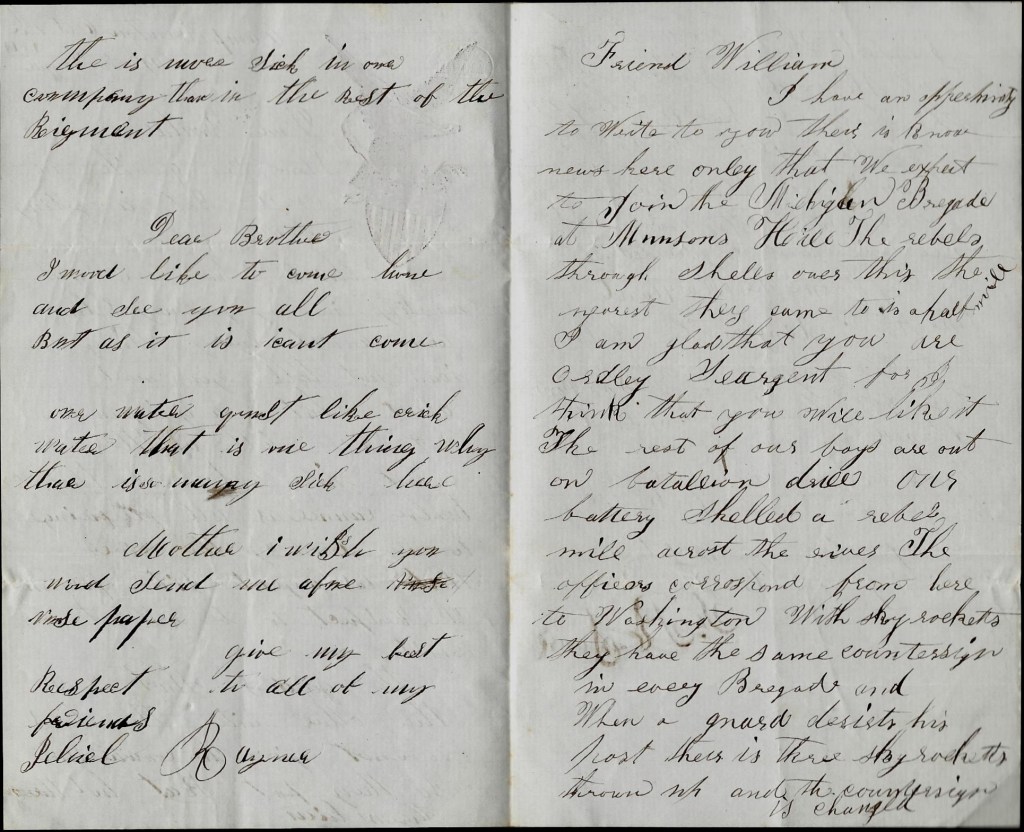 the is more Sick in our
company than in the Rest of the
Reigment
Dear Brother
I wood like to come home
and See you all
But as it is icant come
our water gundt like crick
water that is one thing why
thare is so meny Sick here
Mother i wish you
wod Send me afue
nuse paper
give my best
Respect to all of my
friends
Jehiel Rayner
Friend William
I have an opportunity
to Write to you their is know
news here onley that We expect
to Join the Michigan Bregade
at Munsons Hill The rebels
through shells over this the
nearest they came to is a half mile
I am glad that you are
Ordley Seargent for I
think that you will like it
The rest of our boys are out
on batallion drill Our
battery shelled a rebel
mill acrost the river The
officers correspond from here
to Washington With sky rockets
they have the same countersign
in every Bregade and
When a guard deserts his
post their is three sky rockets
thrown up and the countersign
is changed